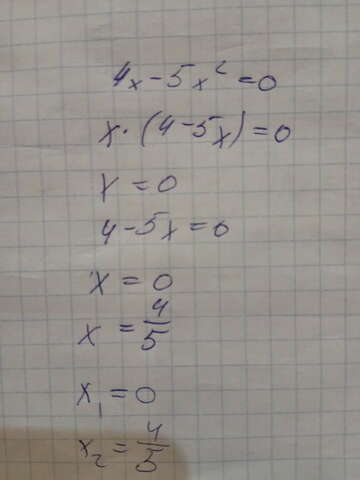 4x - 5x² = 0
x · (4 - 5x) = 0
x = 0
4 - 5x = 0
x = 0
x = 4/5
x₁ = 0
x₂ = 4/5